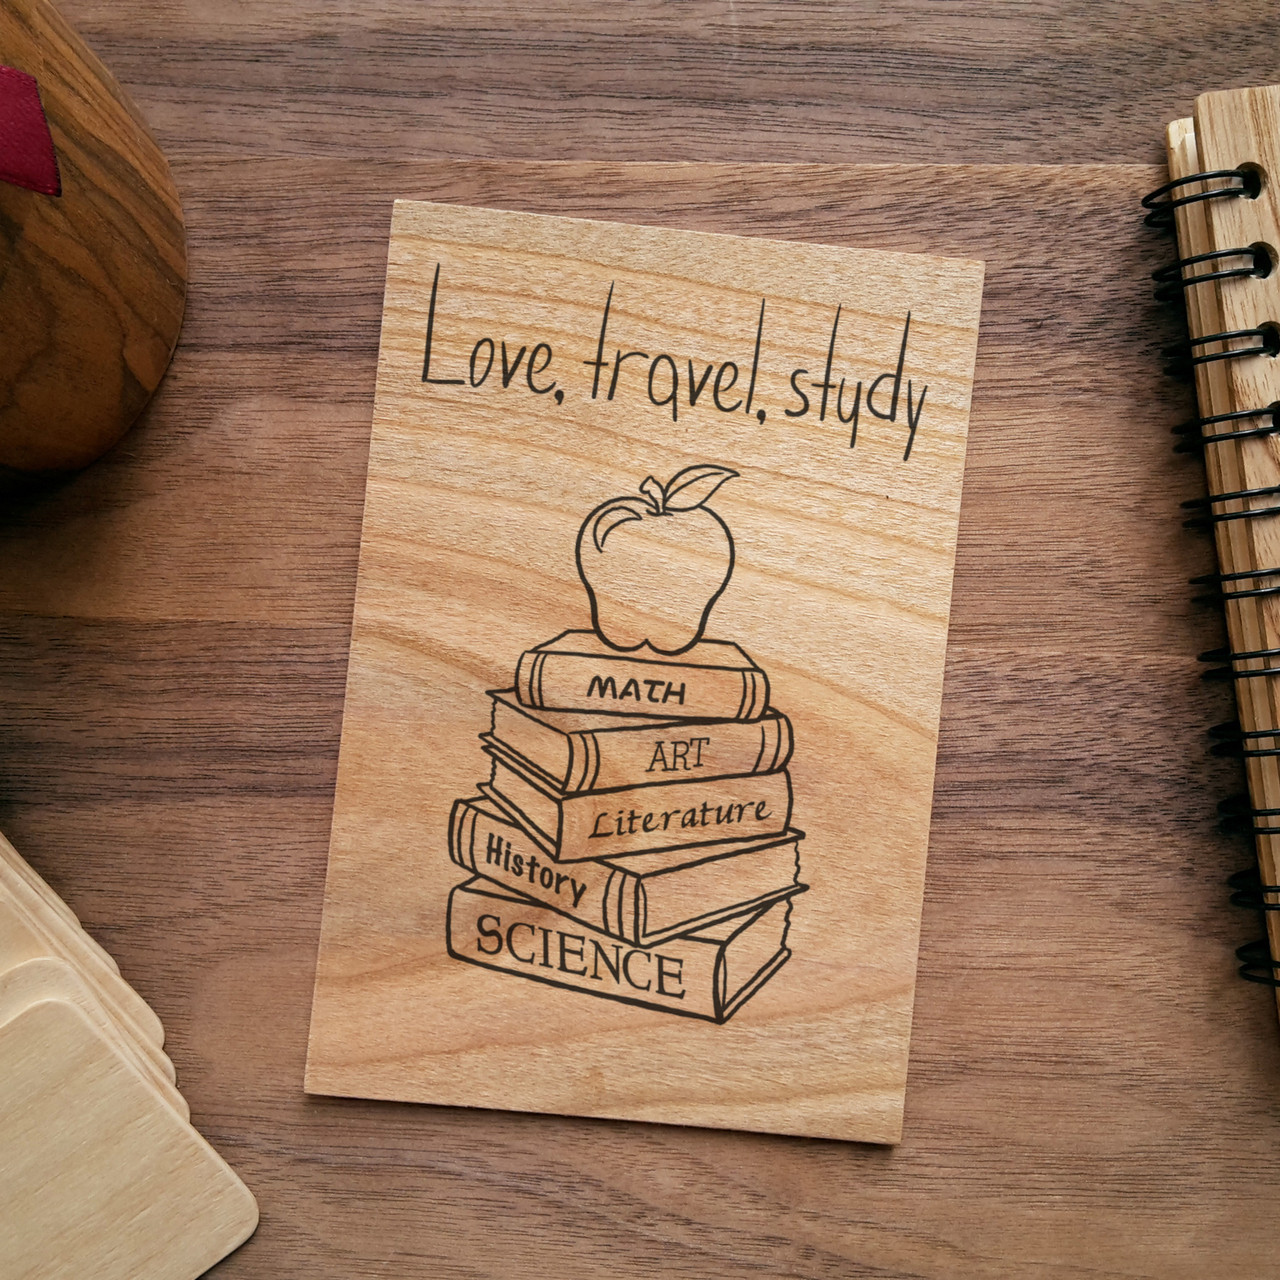 Love, travel, study
MATH
ART
Literature
History
SCIENCE